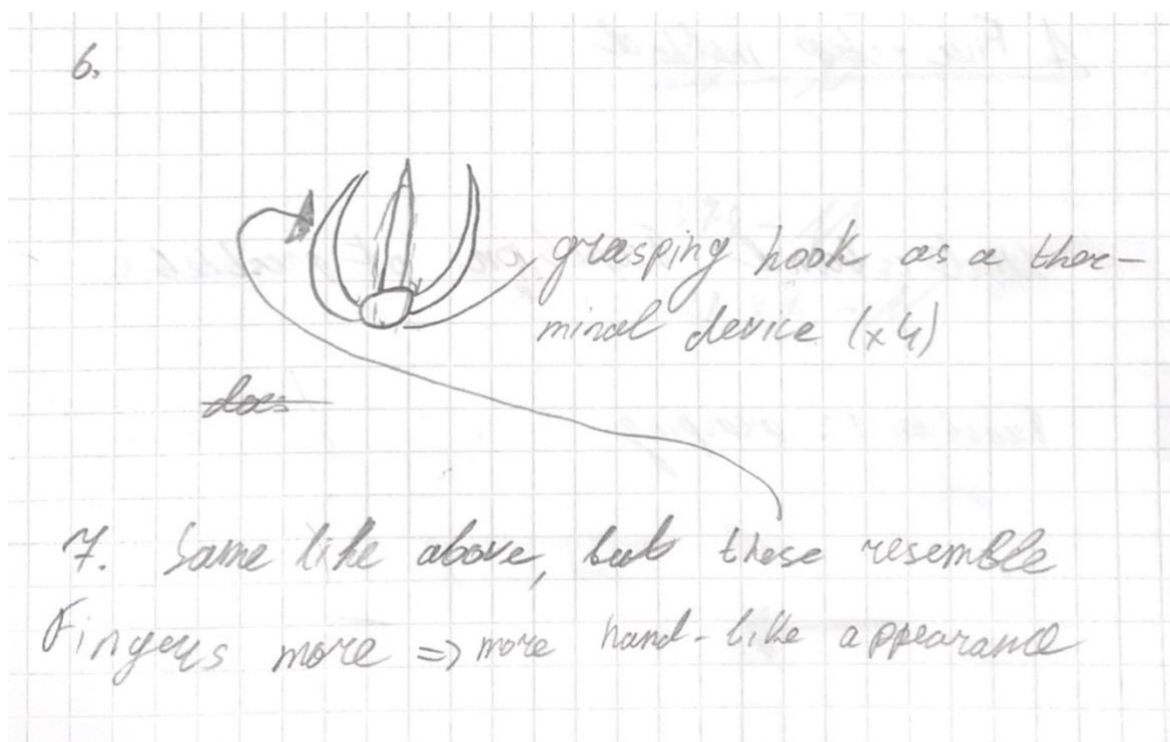 6.
grasping hook as a ther-
minal device (x4)
does
7. Same like above, but these resemble
Fingers more => more hand-like appearance